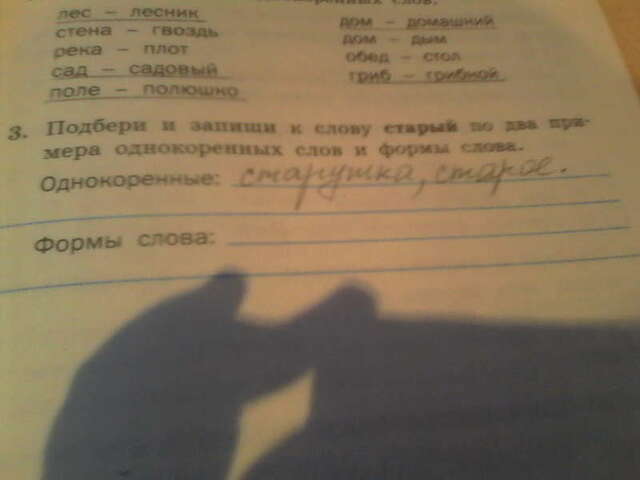 однокоренных слов.
лес – лесник
стена – гвоздь
река – плот
сад – садовый
поле – полюшко
дом – домашний
дом – дым
обед – стол
гриб – грибной
3. Подбери и запиши к слову старый по два при-
мера однокоренных слов и формы слова.
Однокоренные: старушка, старое.
Формы слова: